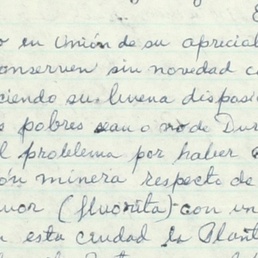 o en Unión de su apreciab
onserven sin novedad c
ciendo su buena disposi
s pobres sean o no de Dur
l problema por haber
ón minera respecto de
uor (fluorita) con un
esta ciudad la Plant